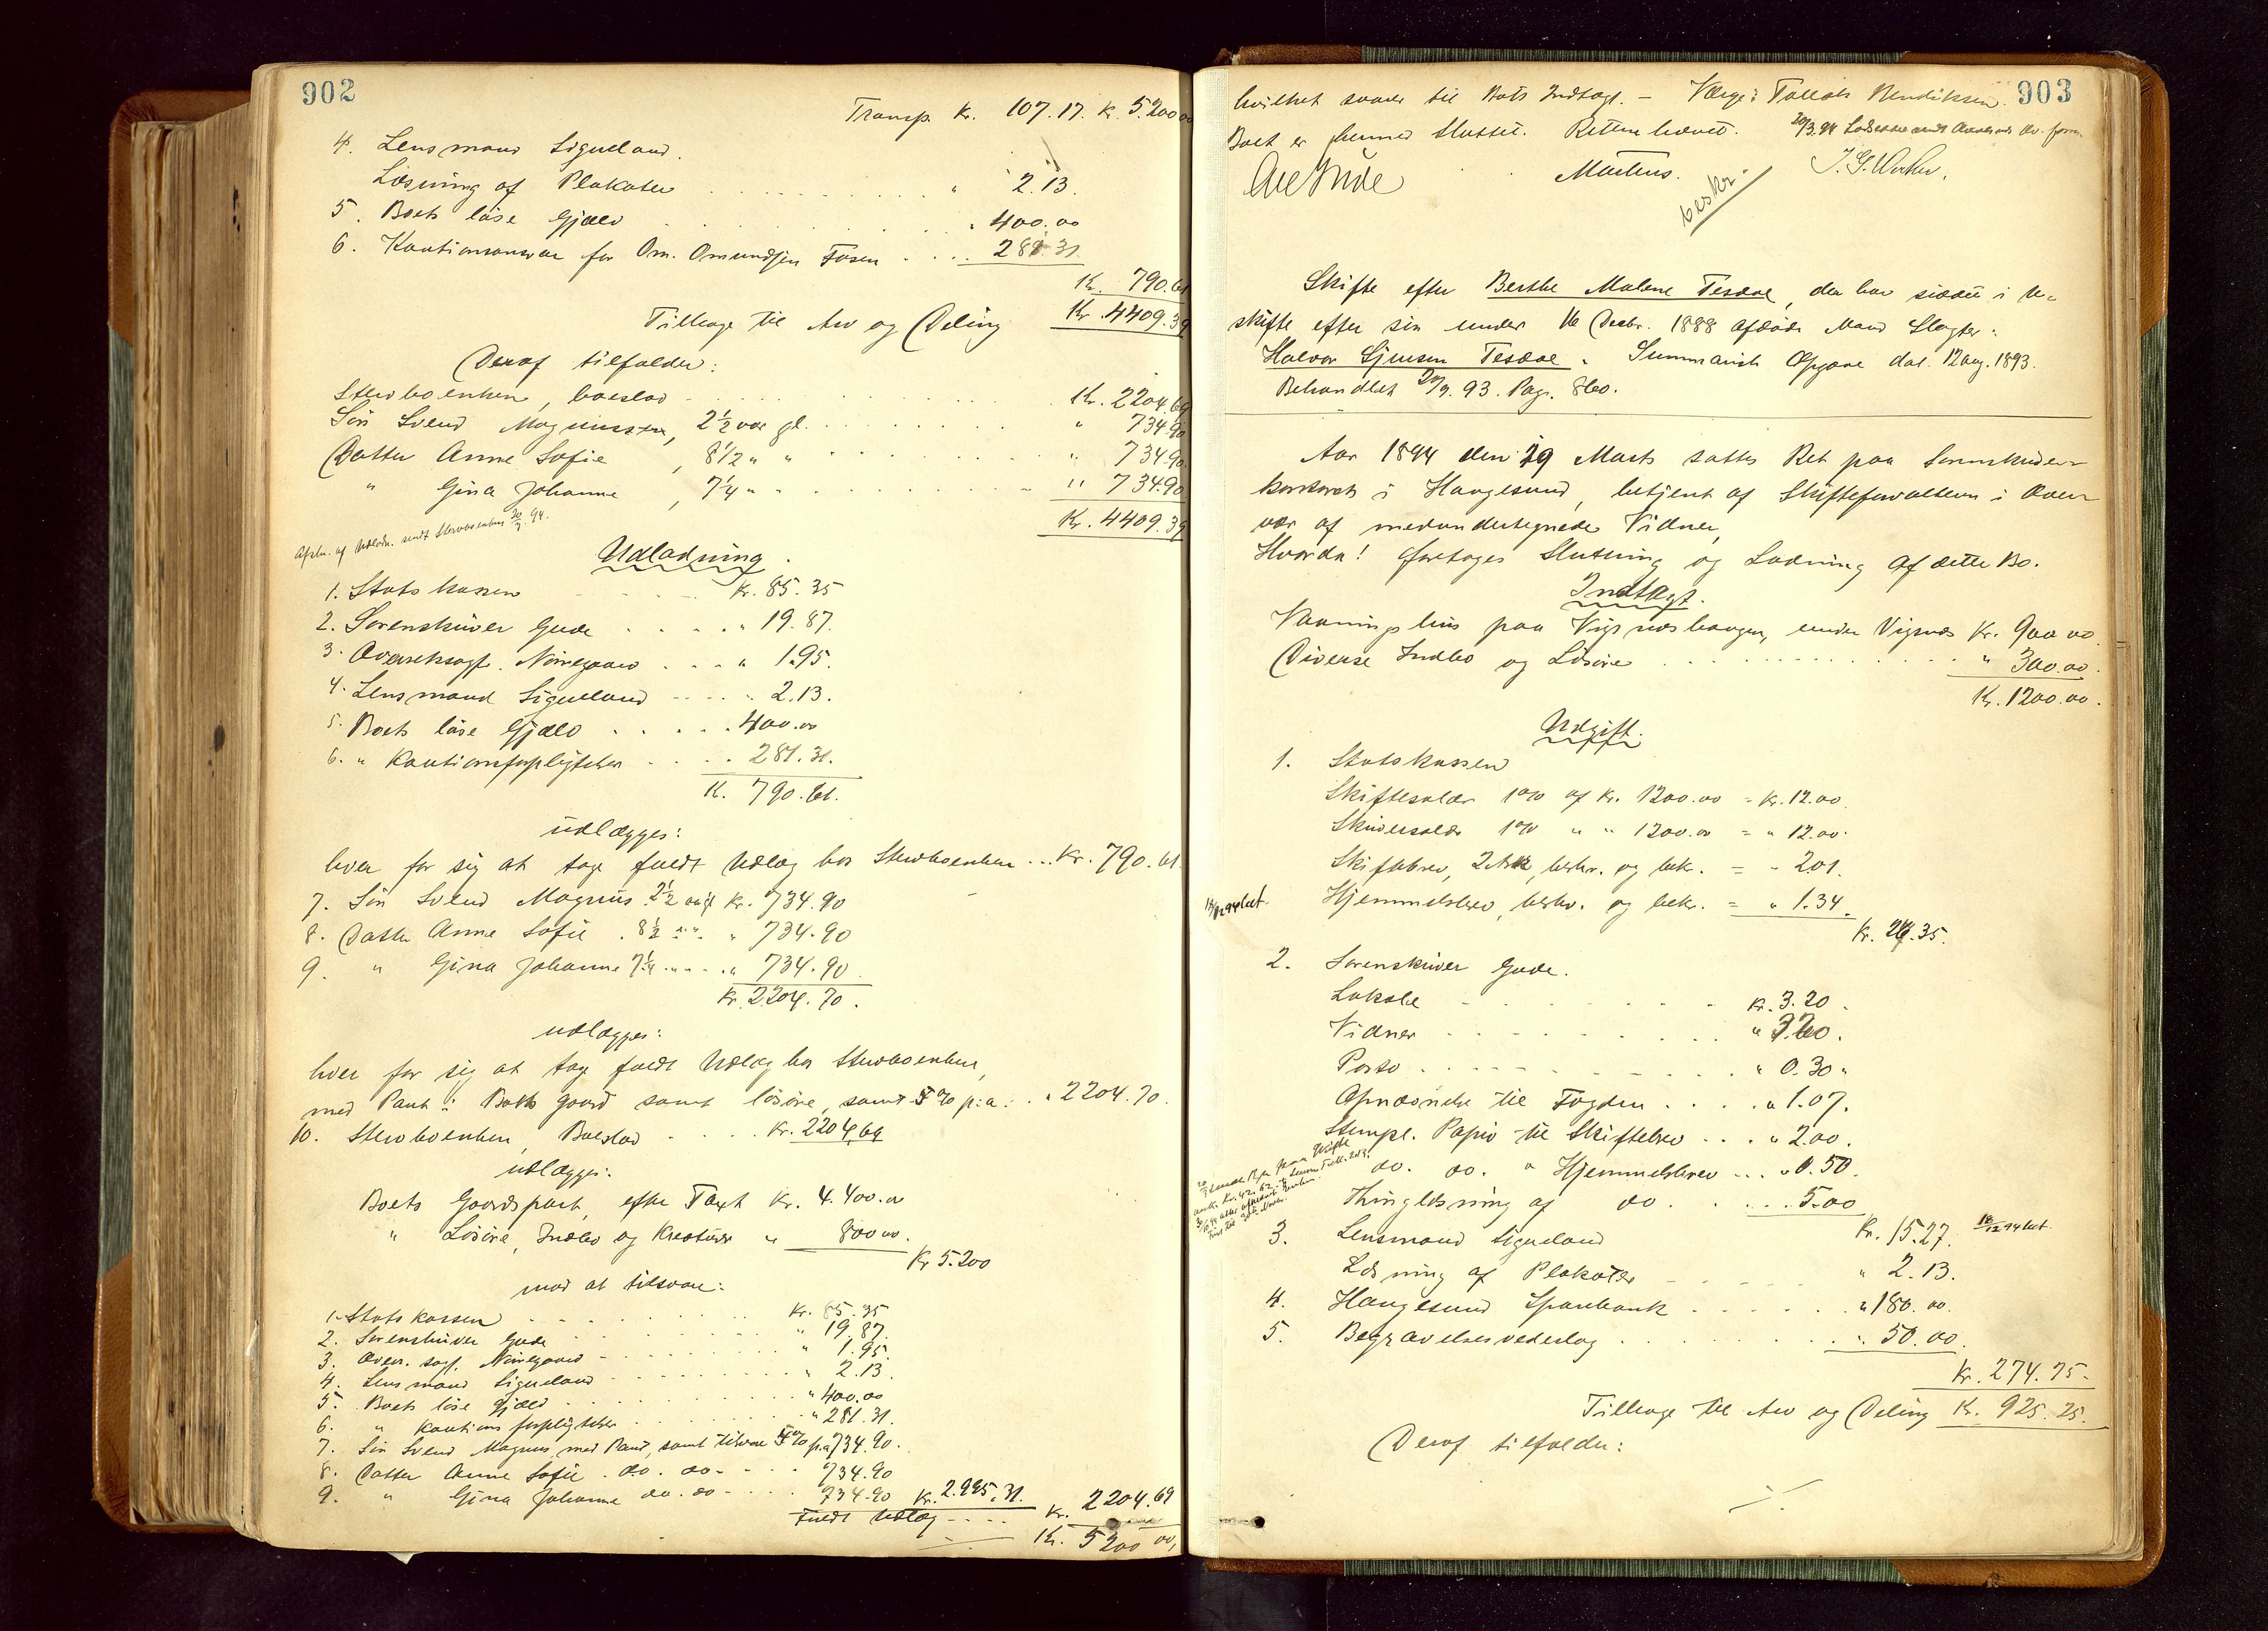 902
Transp. Kr. 107.17. Kr. 5.200.00
4. Lensmand Sigveland.
Læsning af Plakater . . . . . . . " 2.13.
5. Boets løse Gjæld . . . . . . . " 400.00
6. Kautionsansvar for Om. Omundsen Fosen . . . . 281.31.
Kr. 790.61
Tilbage til Arv og Deling Kr. 4409.39
Deraf tilfalder:
Sterboenken, boeslod . . . . . . . Kr. 2204.69
Søn Svend Magnussen, 2 1/2 aar gl. . . . . . . " 734.90
Datter Anne Sofie , 8 1/2 " " . . . . . . . " 734.90.
" Gina Johanne , 7 1/4 " " . . . . . . . " 734.90
Kr. 4409.39
Afskr. af Udlodn. sendt Sterboenken 20/7. 94.
Udlodning.
1. Statskassen . . . . Kr. 85.35
2. Sorenskriver Gude . . . . . " 19.87.
3. Overretssagf. Nørregaard . . . . " 1.95.
4. Lensmand Sigveland . . . . " 2.13.
5. Boets løse Gjæld . . . . . . 400.00
6. " Kautionsforpligtelser . . . . 281.31.
Kr. 790.61.
udlægges:
hver for sig at tage fuldt Udlæg hos Sterboenken ... Kr. 790.61.
7. Søn Svend Magnus 2 1/2 aar gl Kr. 734.90
8. Datter Anne Sofie . 8 1/2 " " . " 734.90
9. " Gina Johanne 7 1/4 . " " . . " 734.90.
Kr. 2204.70.
udlægges:
hver for sig at tage fuldt Udlæg hos Sterboenken,
med Pant i Boets gaard samt løsøre, samt 5% p.a. . . " 2204.70.
10. Sterboenken, Boeslod . . . . Kr. 2204.69
udlægges:
Boets Gaardspart, efter Taxt Kr. 4.400.00
" Løsøre, Indbo og Kreaturer " 800.00.
Kr 5.200
mod at tilsvare:
1. Statskassen . . . . . . . Kr. 85.35
2. Sorenskriver Gude . . . . . . . " 19.87.
3. Overr. sagf. Nørregaard . . . . . . . " 1.95.
4. Lensmand Sigveland . . . . . . . " 2.13.
5. Boets løse Gjæld . . . . . . . " 400.00
6. " Kautionsforpligtelser . . . . . . . " 281.31.
7. Søn Svend Magnus med Pant, samt tilsvar 5% p.a. 734.90.
8. Datter Anne Sofie . do. do . . . . " 734.90
9. " Gina Johanne do. do . . . . 734.90 Kr. 2.995.31.
Fuldt Udlæg . . . . Kr. 2204.69
Kr. 5200.00,
903
hvilket svarer til Bots Indtægt. – Værge: Tallak Bendiksen.
Boet er hermed sluttet. Retten hævet. 20/3.94
Gude Martens. J. G.
beskr.
Skifte efter Berthe Malene Tesdal, der har siddet i u-
skifte efter sin under 16 Decbr. 1888 afdøde Mand Slagter
Halvor Gjensen Tesdal. Summarisk Opgave dat. 12 aug. 1893.
Behandlet 20/9. 93. Pag. 860.
Aar 1894 den 19 Marts sattes Ret paa Sorenskriver-
kontoret i Haugesund, betjent af Skifteforvalteren i Over-
vær af medundertegnede Vidner,
Hvorda! foretoges Slutning og Lodning af dette Bo.
Indtægt.
Vaaningshus paa Vigsneshaugen, under Vigsnes Kr. 900.00.
Diverse Indbo og Løsøre . . . . . . . " 300.00.
Kr. 1200.00.
Udgift.
1. Statskassen
Skiftesalær 1% af Kr. 1200.00 = Kr. 12.00.
Skriversalær 1% " " 1200.00 = " 12.00.
Skiftebrev, 2 Ark, beskr. og bek. = - 2.01.
18/12 94 bet. Hjemmelsbrev, beskr. og bekr. = " 1.34.
Kr. 27.35.
2. Sorenskriver Gude.
Lokale . . . . . . . Kr. 3.20.
Vidner . . . . . . . " 3.20.
Porto . . . . . . . " 0.30 "
Afnæsnelse til Fogden . . . . " 1.07.
Stempl. Papir til Skiftebrev . . . " 2.00.
do. do. " Hjemmelsbrev . . . " 0.50.
Thinglæsning af do . . . . . 5.00
Kr. 15.27. 18/12 94 bet.
3. Lensmand Sigveland
Læsning af Plakater . . . . . " 2.13.
4. Haugesund Sparebank . . . . . . " 180.00.
5. Begravelsesvederlag . . . . . . . " 50.00.
Kr. 274.75.
Tilbage til Arv og Deling Kr. 925.25.
Deraf tilfalder: